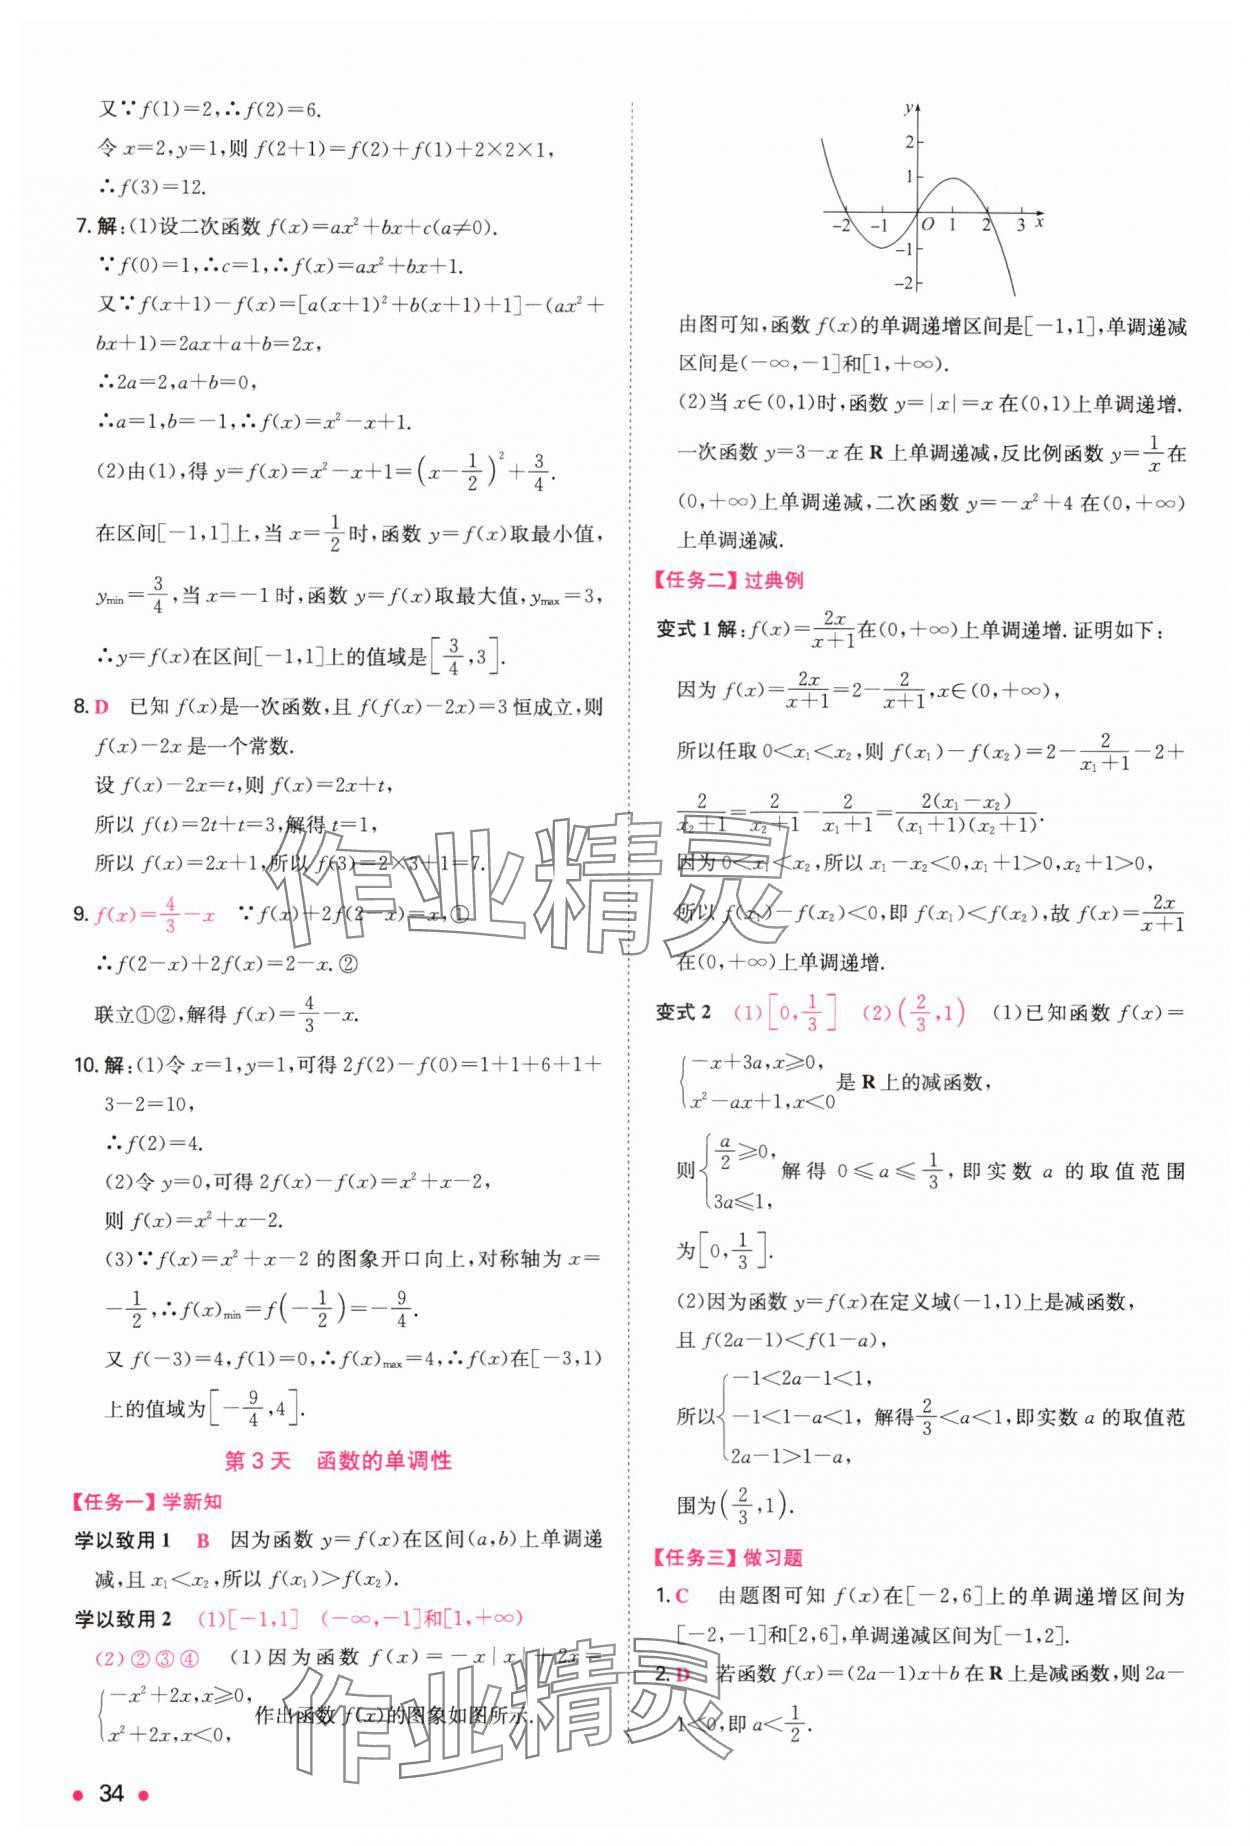 又∵f(1)=2,∴f(2)=6.
令x=2,y=1,则f(2+1)=f(2)+f(1)+2×2×1,
∴f(3)=12.
7.解:(1)设二次函数f(x)=ax²+bx+c(a≠0).
∵f(0)=1,∴c=1,∴f(x)=ax²+bx+1.
又∵f(x+1)-f(x)=[a(x+1)²+b(x+1)+1]-(ax²+
bx+1)=2ax+a+b=2x,
∴2a=2,a+b=0,
∴a=1,b=-1,∴f(x)=x²-x+1.
(2)由(1),得y=f(x)=x²-x+1=(x-1/2)²+3/4.
在区间[-1,1]上,当x=1/2时,函数y=f(x)取最小值,
ymin=3/4,当x=-1时,函数y=f(x)取最大值,ymax=3,
∴y=f(x)在区间[-1,1]上的值域是[3/4,3].
8.D 已知f(x)是一次函数,且f(f(x)-2x)=3恒成立,则
f(x)-2x是一个常数.
设f(x)-2x=t,则f(x)=2x+t,
所以f(t)=2t+t=3,解得t=1,
所以f(x)=2x+1,所以f(3)=2×3+1=7.
9.f(x)=4/3-x ∵f(x)+2f(2-x)=x,①
∴f(2-x)+2f(x)=2-x.②
联立①②,解得f(x)=4/3-x.
10.解:(1)令x=1,y=1,可得2f(2)-f(0)=1+1+6+1+
3-2=10,
∴f(2)=4.
(2)令y=0,可得2f(x)-f(x)=x²+x-2,
则f(x)=x²+x-2.
(3)∵f(x)=x²+x-2的图象开口向上,对称轴为x=
-1/2,∴f(x)min=f(-1/2)=-9/4.
又f(-3)=4,f(1)=0,∴f(x)max=4,∴f(x)在[-3,1)
上的值域为[-9/4,4].
第3天 函数的单调性
【任务一】学新知
学以致用1 B 因为函数y=f(x)在区间(a,b)上单调递
减,且x₁<x₂,所以f(x₁)>f(x₂).
学以致用2 (1)[-1,1] (-∞,-1]和[1,+∞)
(2)②③④ (1)因为函数f(x)=-x|x|+2x=
{-x²+2x,x≥0,
x²+2x,x<0, 作出函数f(x)的图象如图所示.
34
y
2
1
-2 -1 O 1 2 3 x
-1
-2
由图可知,函数f(x)的单调递增区间是[-1,1],单调递减
区间是(-∞,-1]和[1,+∞).
(2)当x∈(0,1)时,函数y=|x|=x在(0,1)上单调递增.
一次函数y=3-x在R上单调递减,反比例函数y=1/x在
(0,+∞)上单调递减,二次函数y=-x²+4在(0,+∞)
上单调递减.
【任务二】过典例
变式1解:f(x)=2x/(x+1)在(0,+∞)上单调递增.证明如下:
因为f(x)=2x/(x+1)=2-2/(x+1),x∈(0,+∞),
所以任取0<x₁<x₂,则f(x₁)-f(x₂)=2-2/(x₁+1)-2+
2/(x₂+1)=2/(x₂+1)-2/(x₁+1)=2(x₁-x₂)/(x₁+1)(x₂+1).
因为0<x₁<x₂,所以x₁-x₂<0,x₁+1>0,x₂+1>0,
所以f(x₁)-f(x₂)<0,即f(x₁)<f(x₂),故f(x)=2x/(x+1)
在(0,+∞)上单调递增.
变式2 (1)[0,1/3] (2)(2/3,1) (1)已知函数f(x)=
{-x+3a,x≥0,
x²-ax+1,x<0 是R上的减函数,
则{a/2≥0,
3a≤1, 解得0≤a≤1/3,即实数a的取值范围
为[0,1/3].
(2)因为函数y=f(x)在定义域(-1,1)上是减函数,
且f(2a-1)<f(1-a),
所以{-1<2a-1<1,
-1<1-a<1, 解得2/3<a<1,即实数a的取值范
2a-1>1-a,
围为(2/3,1).
【任务三】做习题
1.C 由题图可知f(x)在[-2,6]上的单调递增区间为
[-2,-1]和[2,6],单调递减区间为[-1,2].
2.D 若函数f(x)=(2a-1)x+b在R上是减函数,则2a-
1<0,即a<1/2.
作业精灵
作业精灵